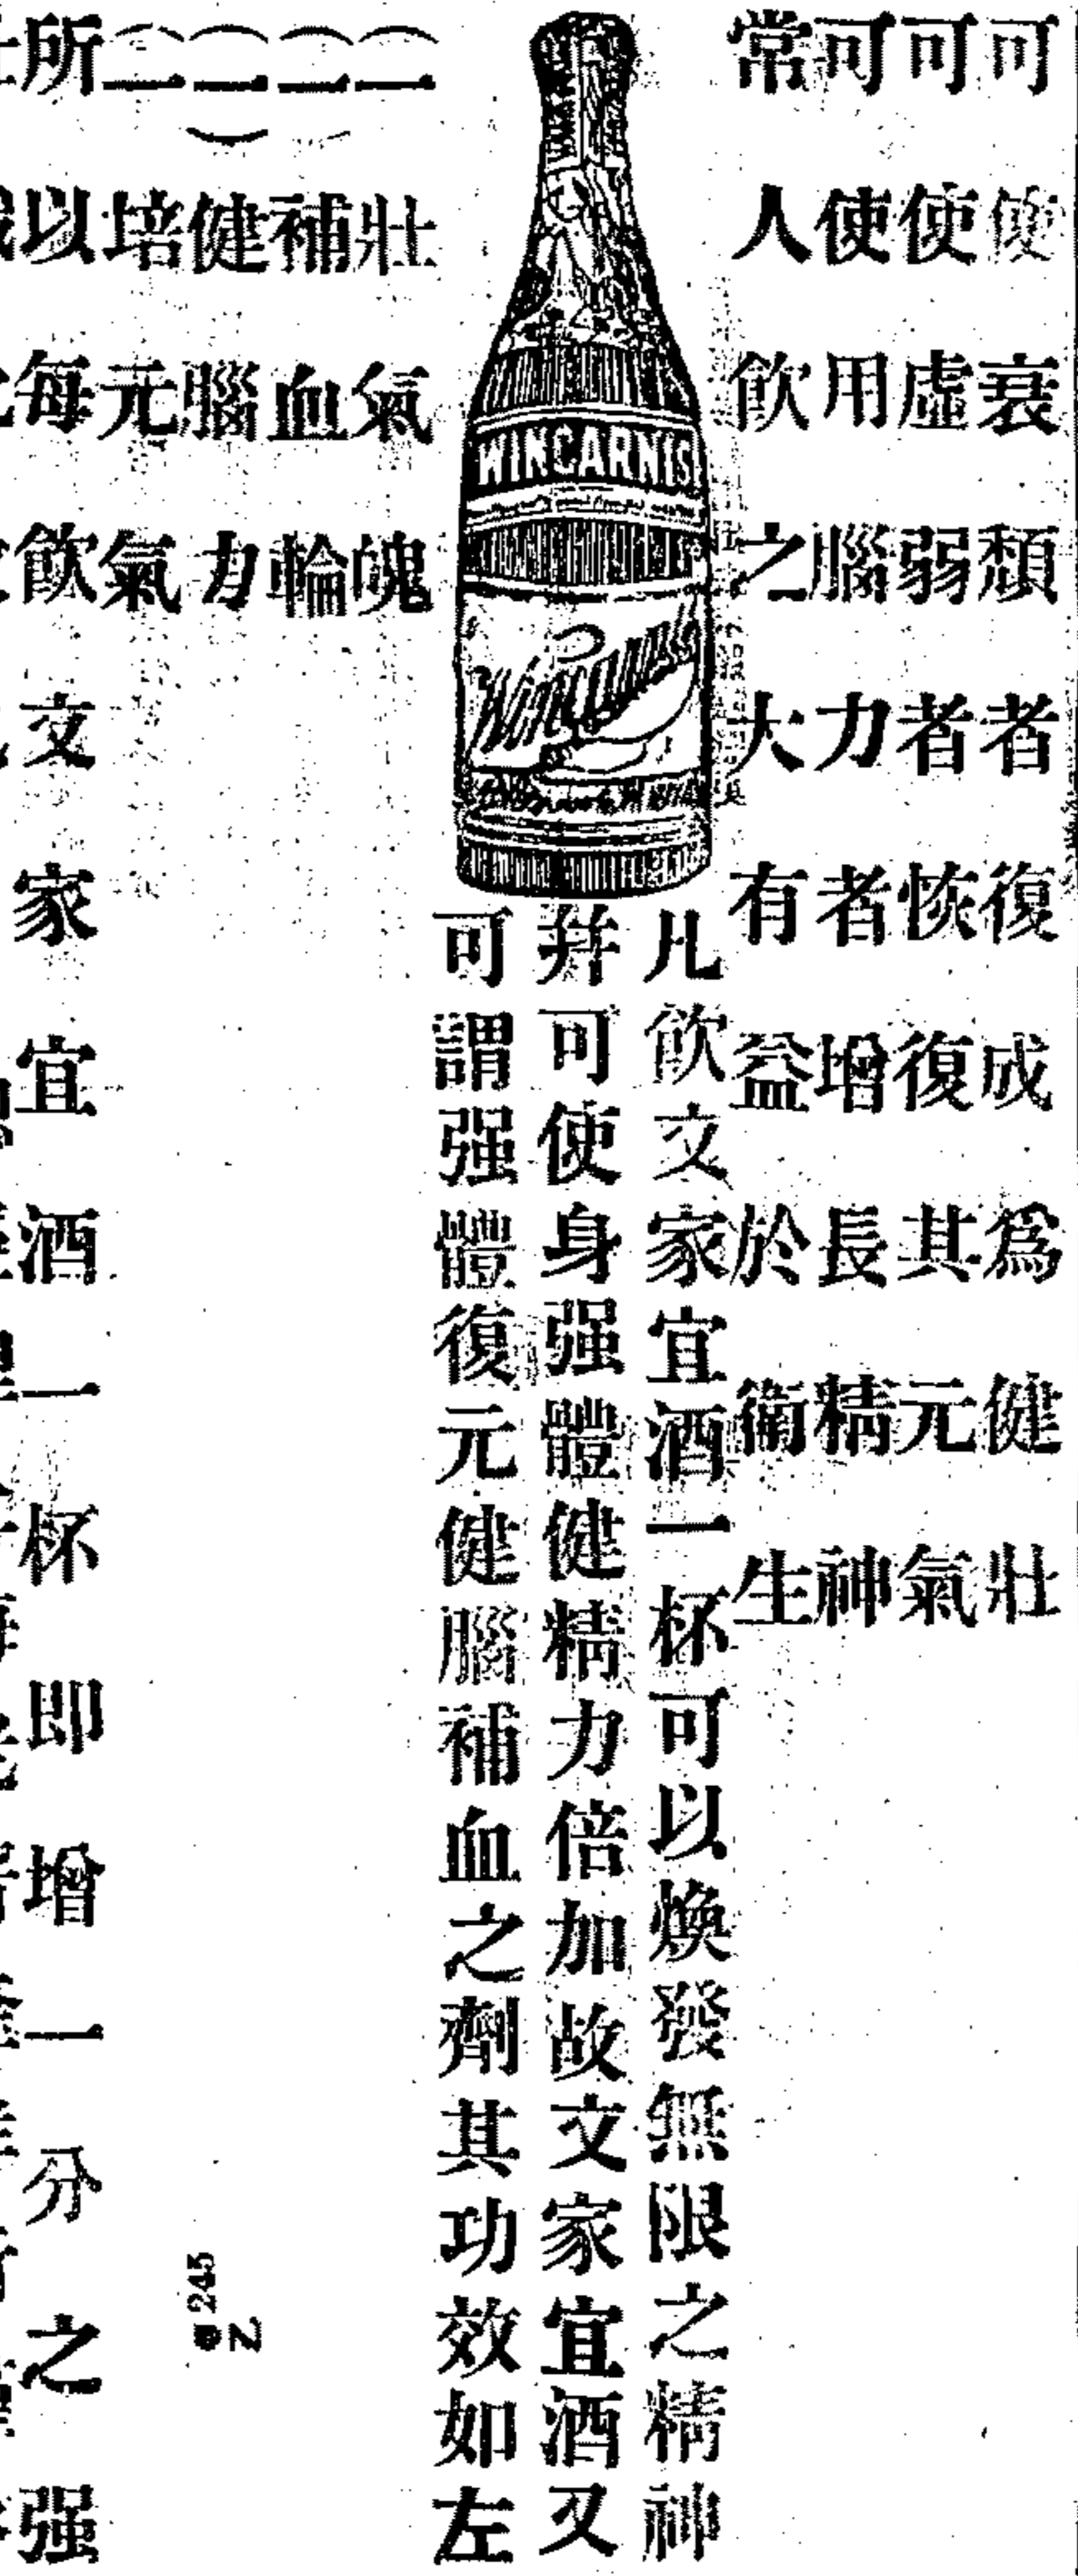 可使衰頹者復成爲健壯
可使虛弱者恢復其元氣
可使用腦力者增長精神
常人飲之大有益於衞生
WINCARNIS
Wincarnis
凡飲文家宜酒一杯可以煥發無限之精神
幷可使身强體健精力倍加故文家宜酒又
可謂强體復元健腦補血之劑其功效如左
(一 壯氣魄
(二 補血輪
(三) 健腦力
培元氣
所以每飲文家宜酒一杯即增一分之强
245
Z